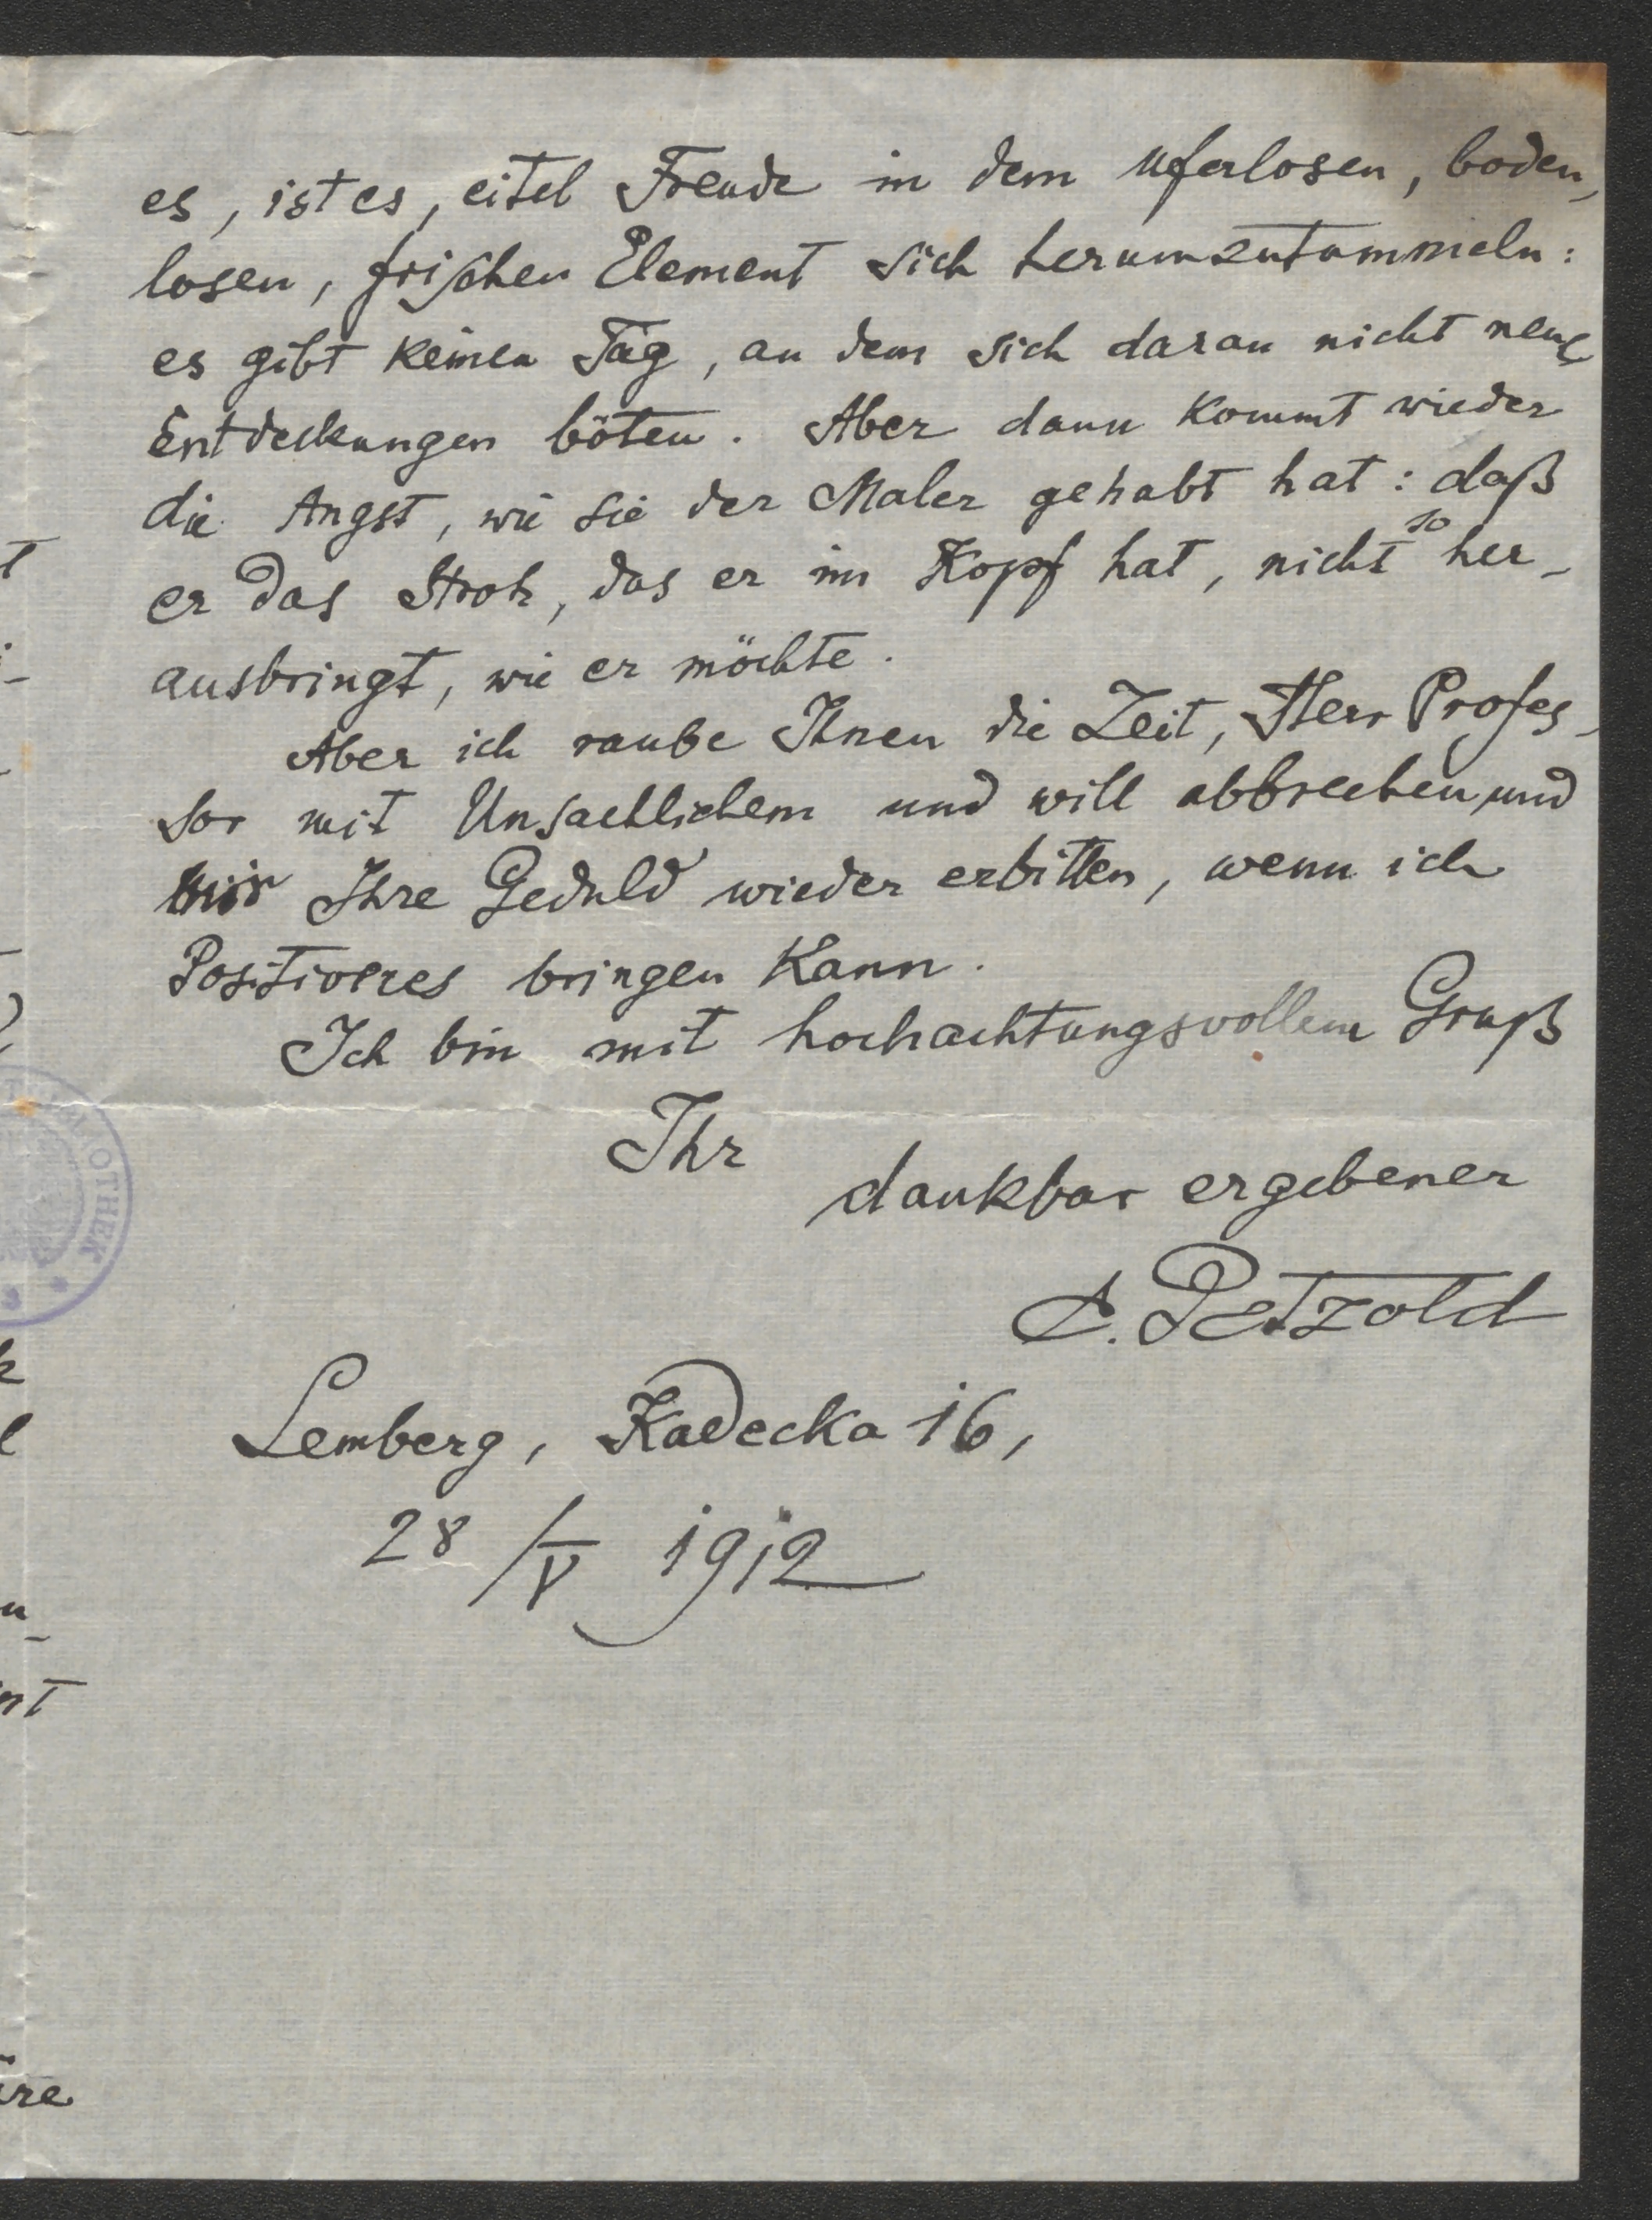 es, ist es, eitel Freude in dem uferlosen, boden-
losen, frischen Element sich herumzutummeln:
es gibt keinen Tag, an dem sich daran nicht neue
Entdeckungen böten. Aber dann kommt wieder
die Angst, wie sie der Maler gehabt hat: daß
er das Stroh, das er im Kopf hat, nicht so her-
ausbringt, wie er möchte.
Aber ich raube Ihnen die Zeit, Herr Profes-
sor mit Unsachlichem und will abbrechen und
mir Ihre Geduld wieder erbitten, wenn ich
Positiveres bringen kann.
Ich bin mit hochachtungsvollem Gruß
Ihr
dankbar ergebener
E. Petzold
Lemberg, Kadecka 16,
28/V 1912